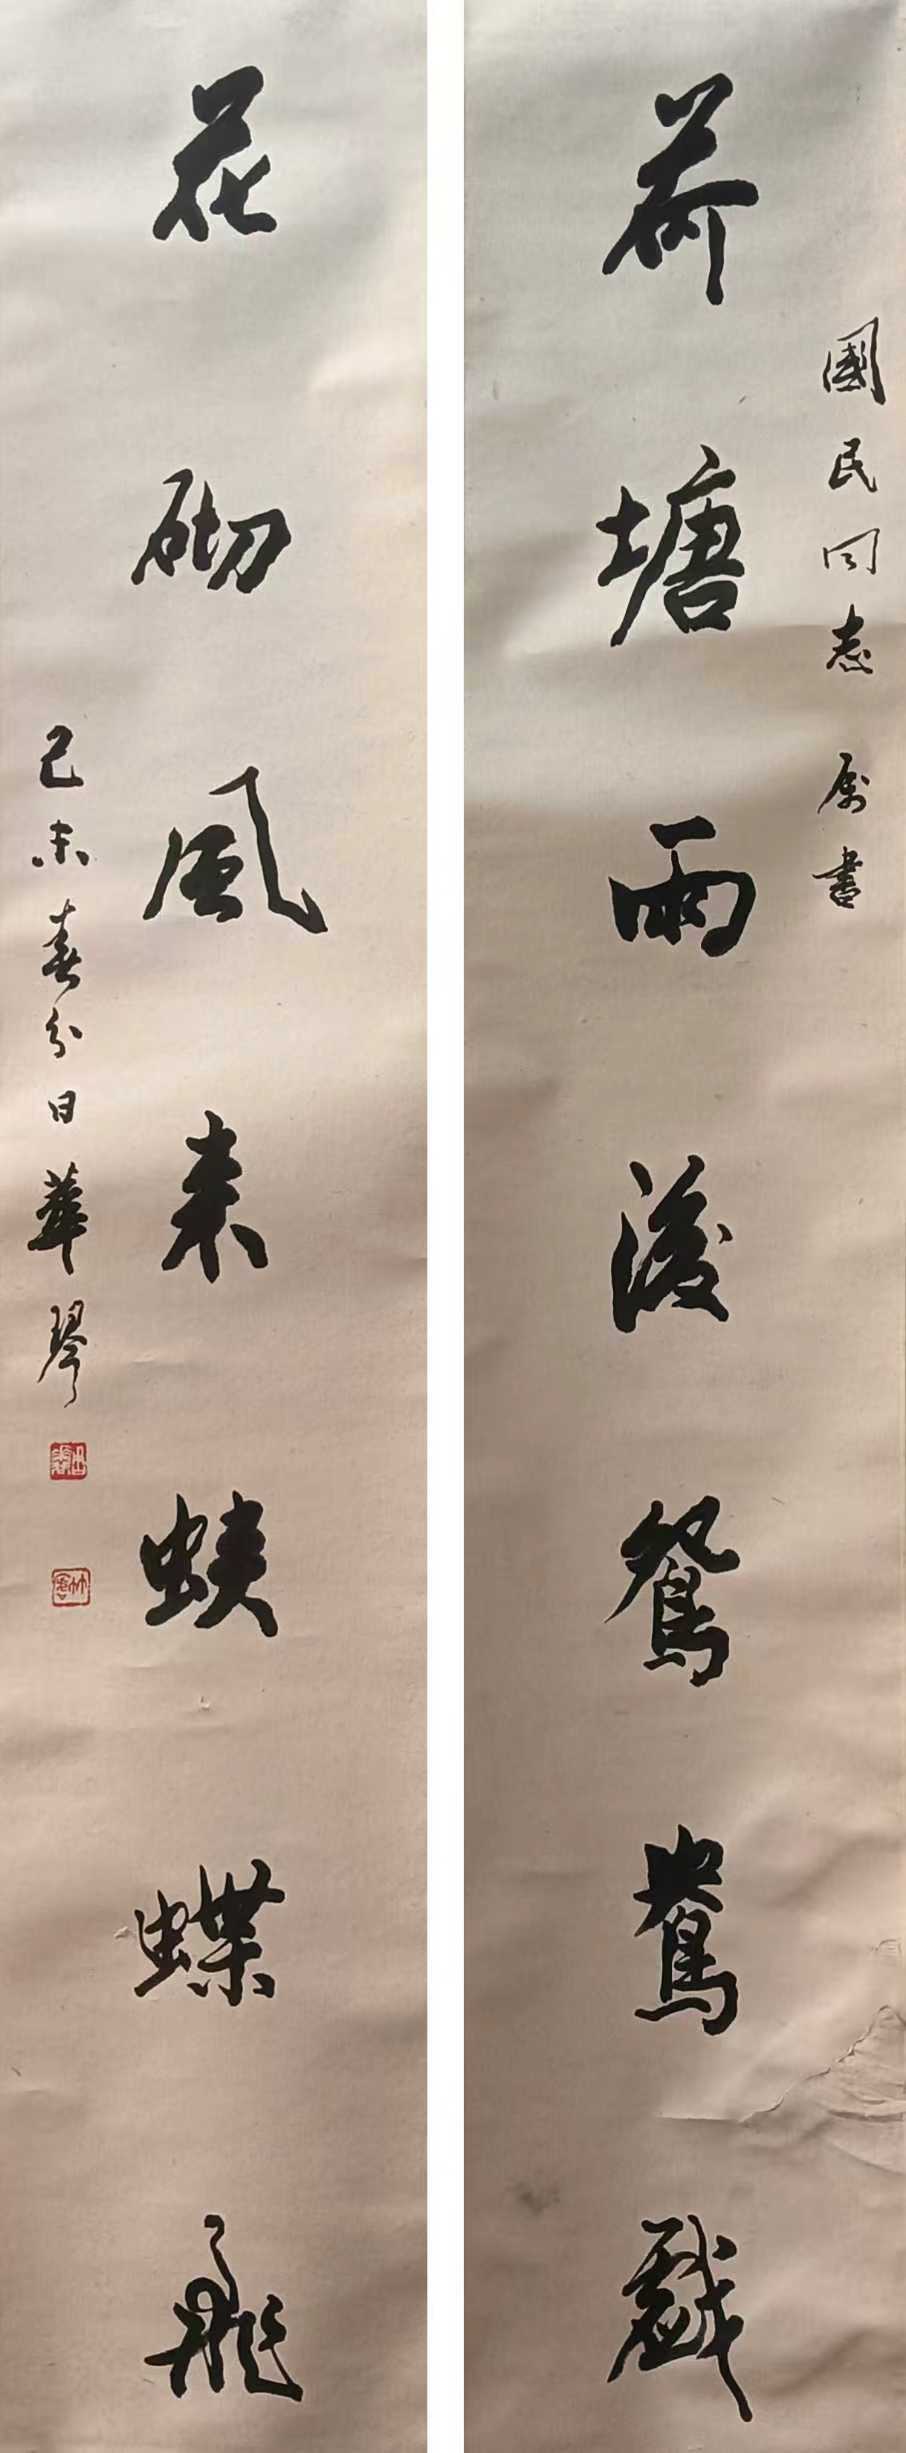 國民同志 属書
荷塘雨後鴛鴦戲
花砌風来蛺蝶飛
己未春分日華琴